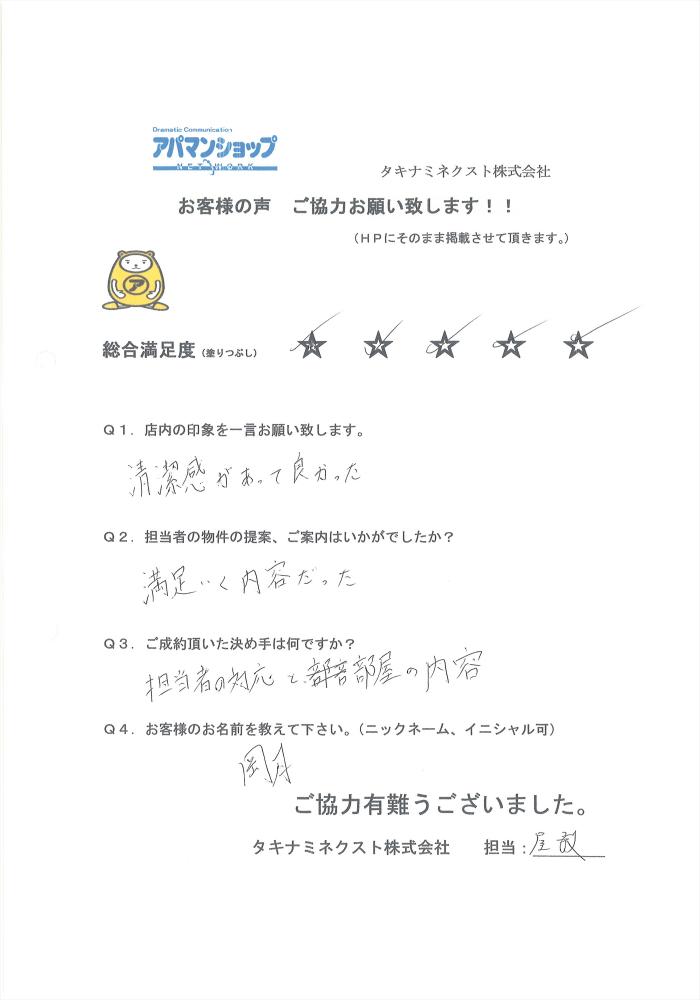 Dramatic Communication
アパマンショップ
NETWORK
タキナミネクスト株式会社
お客様の声 ご協力お願い致します！！
（ＨＰにそのまま掲載させて頂きます。）
ア
総合満足度（塗りつぶし） ☆ ☆ ☆ ☆ ☆
Ｑ１．店内の印象を一言お願い致します。
清潔感があって良かった
Ｑ２．担当者の物件の提案、ご案内はいかがでしたか？
満足いく内容だった
Ｑ３．ご成約頂いた決め手は何ですか？
担当者の対応と、部屋の内容
Ｑ４．お客様のお名前を教えて下さい。（ニックネーム、イニシャル可）
ご協力有難うございました。
タキナミネクスト株式会社 担当：屋敷